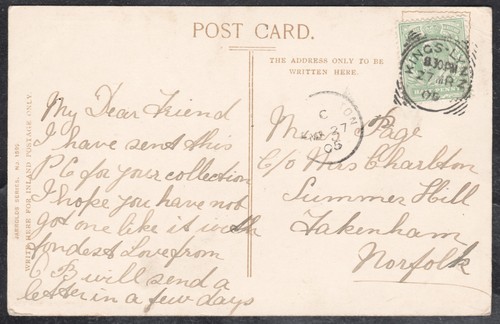 POST CARD.
THE ADDRESS ONLY TO BE
WRITTEN HERE.
JARROLDS SERIES. No
WRITE HERE FOR INLAND POSTAGE ONLY.
My Dear Friend
I have sent this
P C for your collection
I hope you have not
got one like it with
fondest Love from
C B will send a
letter in a few days
KINGS-LYNN
8.30PM
27
05
HALFPENNY
C
27
05
Page
C/o Mrs Charlton
Summer Hill
Fakenham
Norfolk